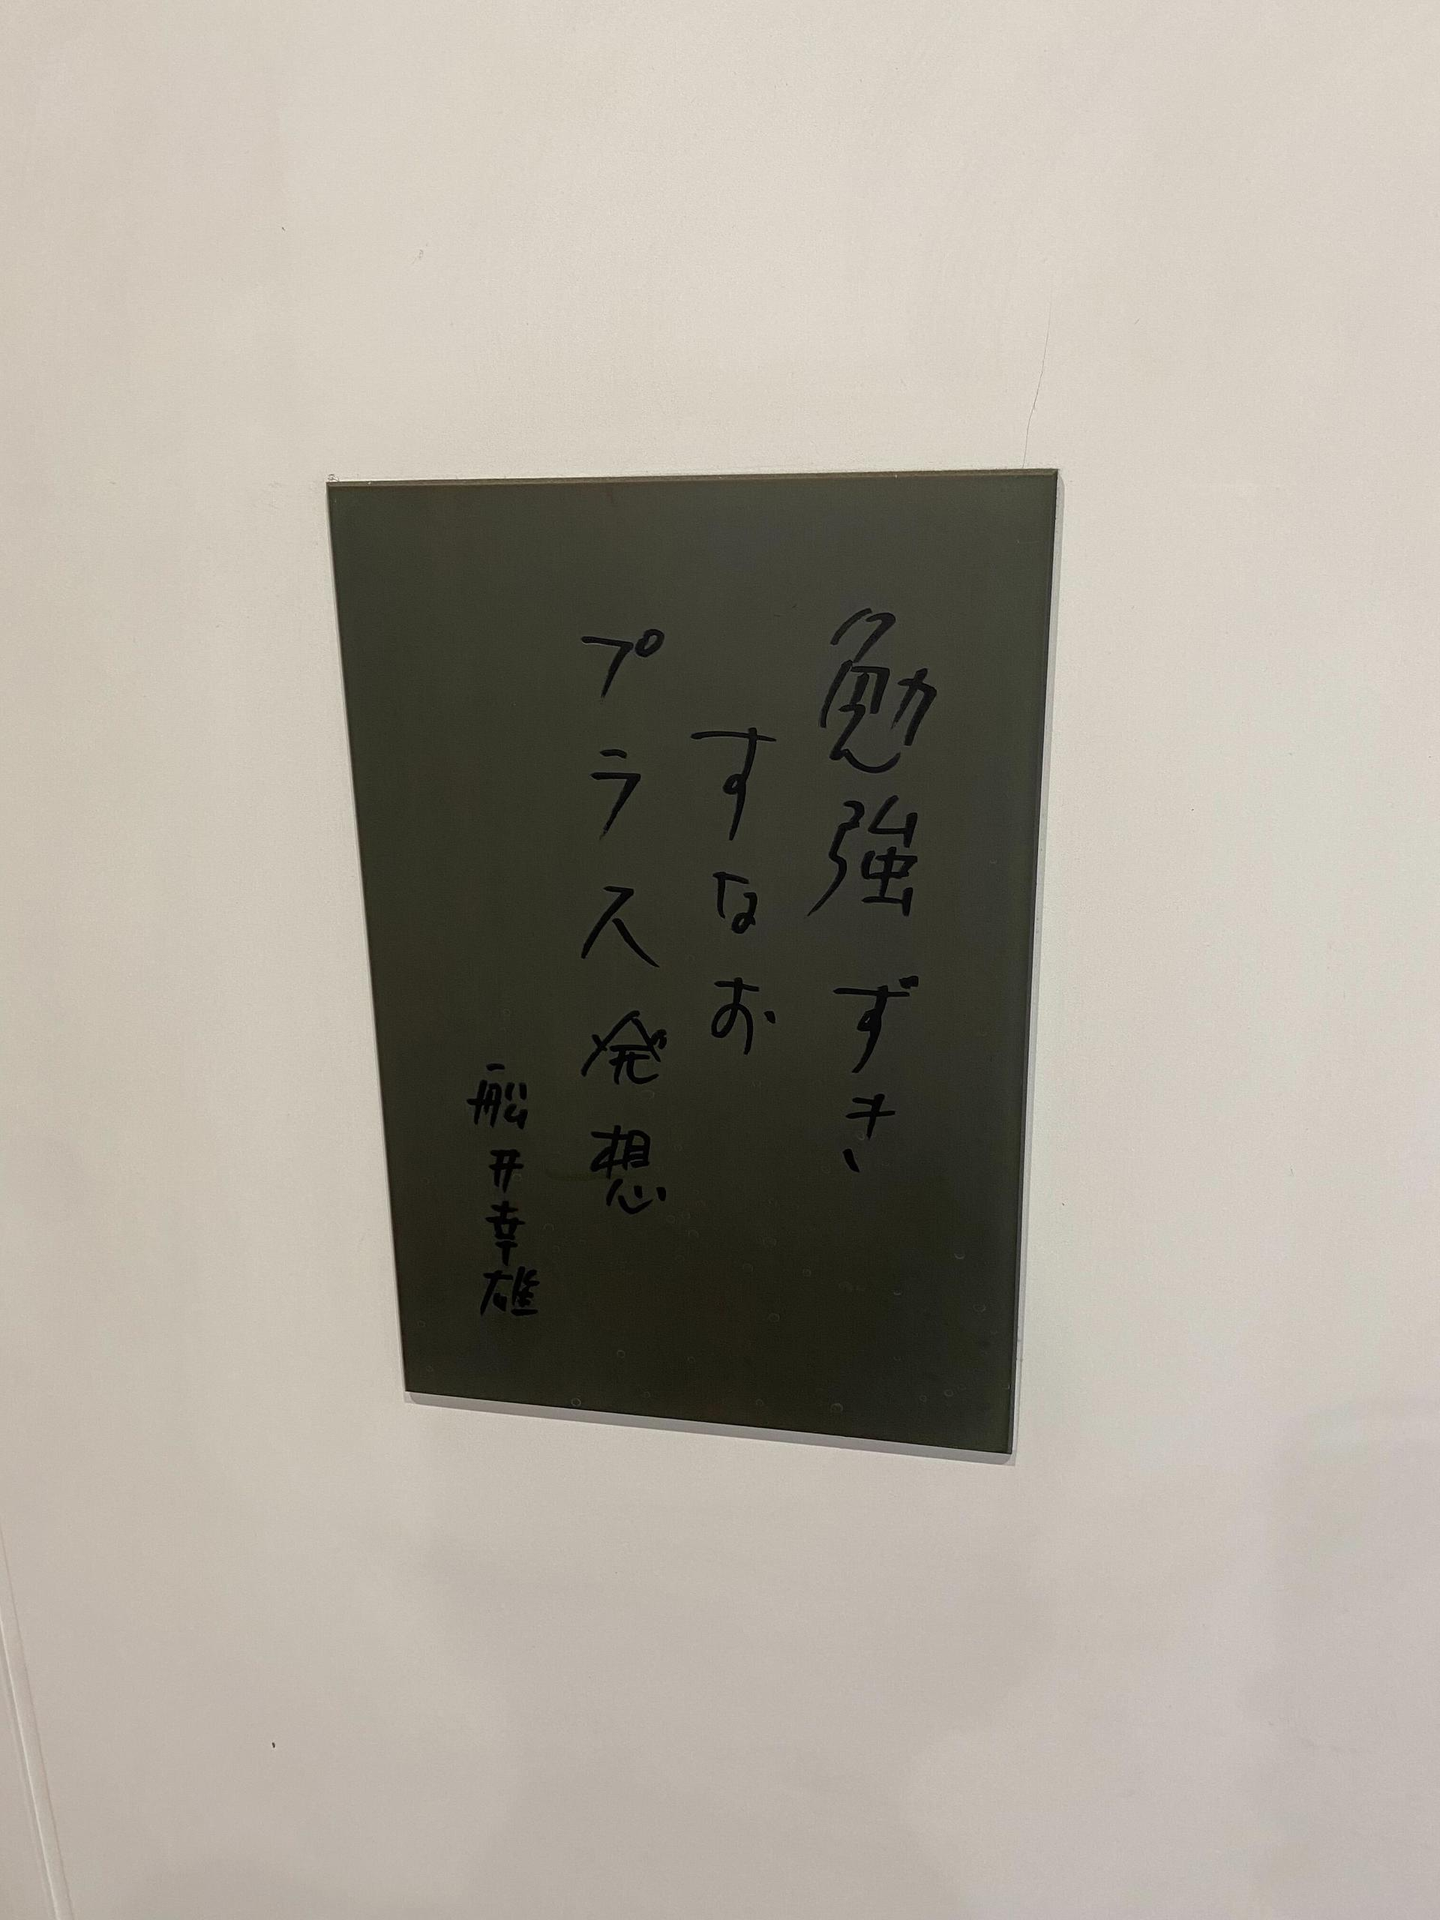 勉強ずき
すなお
プラス発想
船井幸雄